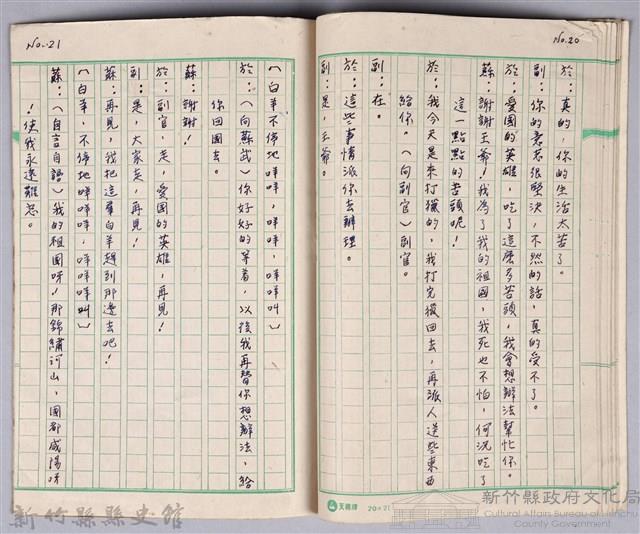 No. 20
於：真的，你的生活太苦了。
副：你的意志很堅決，不然的話，真的受不了。
於：愛國的英雄，吃了這麼多苦頭，我會想辦法幫忙你。
蘇：謝謝王爺！我為了我的祖國，我死也不怕，何況吃了
這一點點的苦頭呢！
於：我今天是來打獵的，我打完後回去，再派人送些東西
給你。（向副官）副官。
副：在。
於：這些事情派你去辦理。
副：是，王爺。
天鵝牌 20×21
No. 21
（白羊不停地咩咩，咩咩，咩咩叫）
於：（向蘇武）你好好的等着，以後我再替你想辦法，給
你回國去。
蘇：謝謝！
於：副官，走，愛國的英雄，再見！
副：是，大家走，再見！
蘇：再見，我把這羣白羊趕到那邊去吧！
（白羊，不停地咩咩咩，咩咩咩叫）
蘇：（自言自語）我的祖國呀！那錦繡河山，國都咸陽呀
！使我永遠難忘。
新竹縣縣史館
新竹縣政府文化局
Cultural Affairs Bureau of Hsinchu
County Government